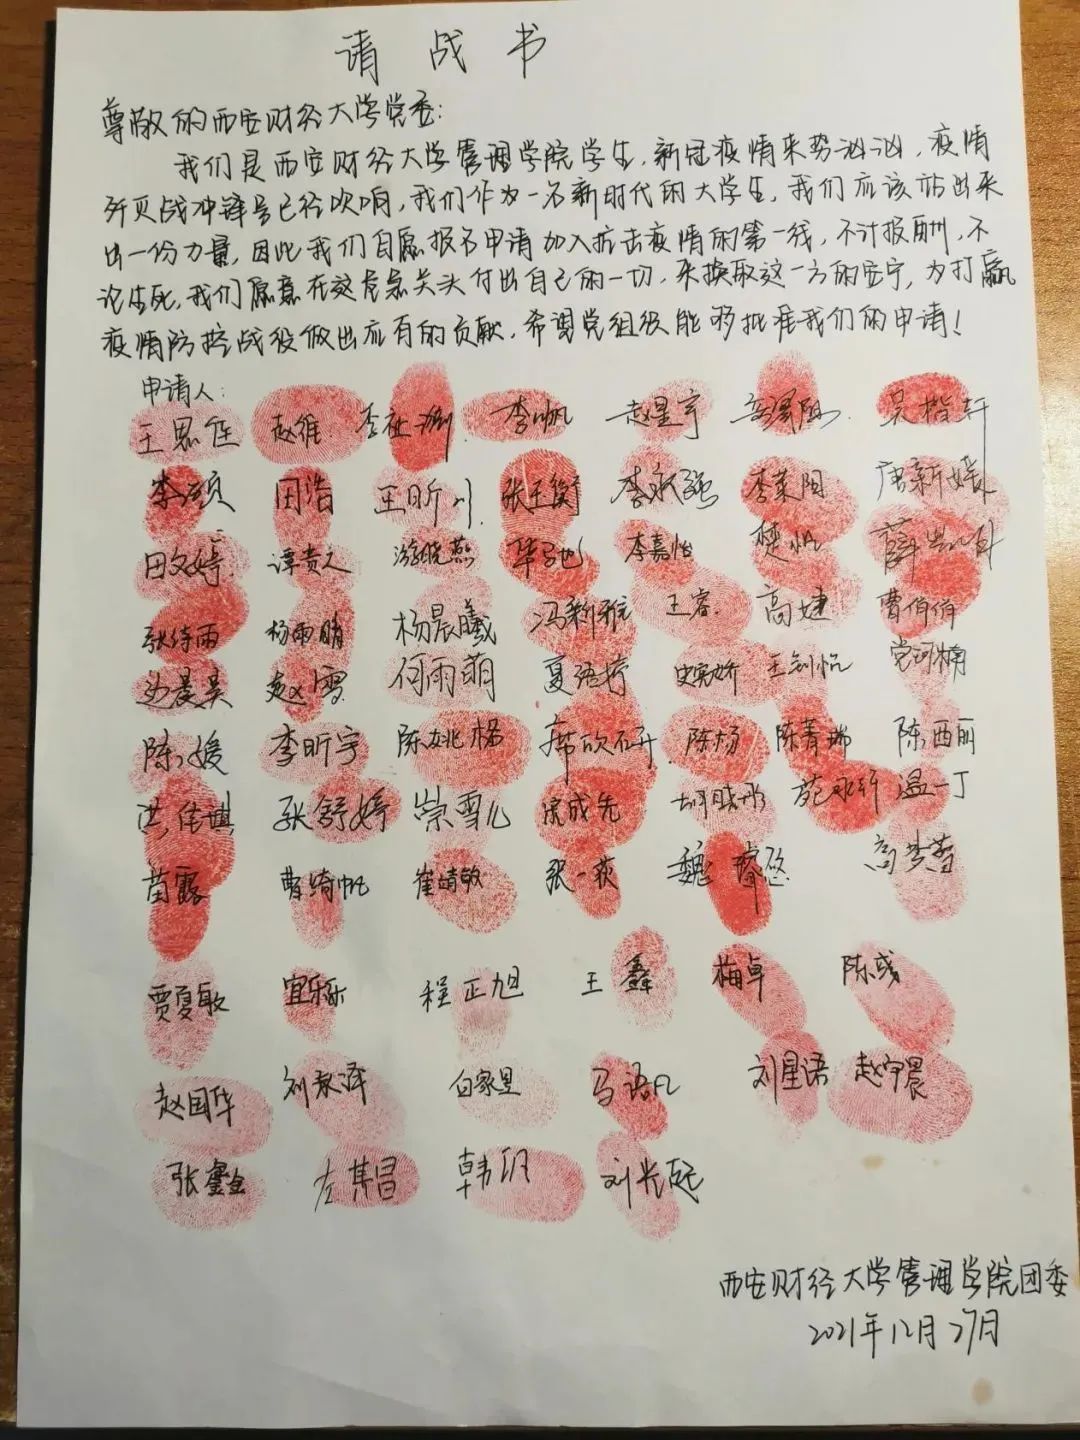 请战书
尊敬的西安财经大学党委:
我们是西安财经大学管理学院学生,新冠疫情来势汹汹,疫情
歼灭战冲锋号已经吹响,我们作为一名新时代的大学生,我们应该站出来
出一份力量,因此我们自愿报名申请加入抗击疫情的第一线,不计报酬,不
论生死,我们愿意在这危急关头付出自己的一切,来换取这一方的安宁,为打赢
疫情防控战役做出应有的贡献,希望党组织能够批准我们的申请!
申请人:
赵维 李帆 赵星宇 吴楷轩
李硕 田浩 王昕 张玉俊 李永强 李莱阳 唐新媛
田文婷 谭贵人 游晓燕 毕驰 李嘉怡 楚帆
张绮雨 杨雨晴 杨晨曦 冯新雅 王睿 高婕 曹俏俏
边晨昊 赵雪 何雨萌 夏语婷
陈媛 李昕宇 陈姚杨 陈杨 陈菁瑞 陈西丽
洪佳琪 张舒婷 崇雪儿 苑永轩 温一丁
苗露 曹绮帆 崔婧敏 张一荻 魏
贾夏敏 程正旭 王鑫 梅卓 陈彧
赵国华 白家昱 马语凡 刘星语 赵宇晨
张鑫 左其昌 韩帆
西安财经大学管理学院团委
2021年12月27月